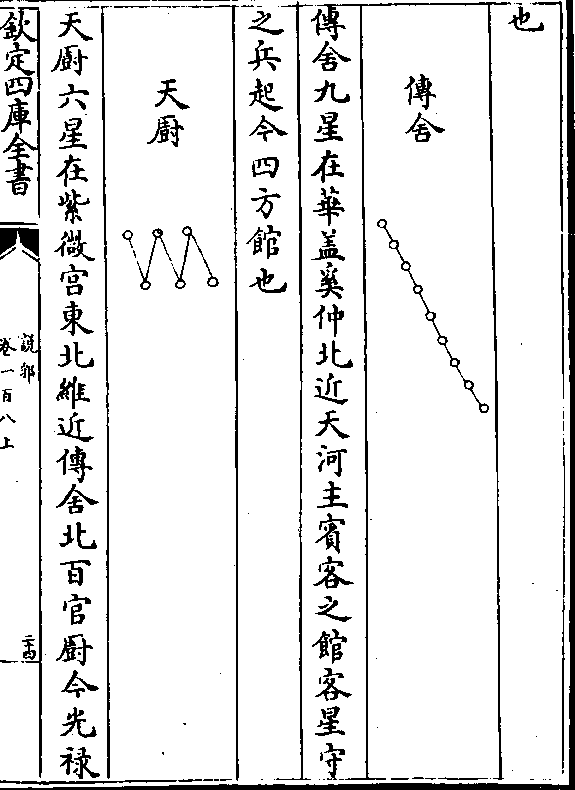 也
傳舍
傳舍九星在華盖奚仲北近天河主賓客之館客星守
之兵起今四方館也
天厨
天厨六星在紫微宫東北維近傳舍北百官厨今光禄
欽定四庫全書
說郛
卷一百八上
二十四